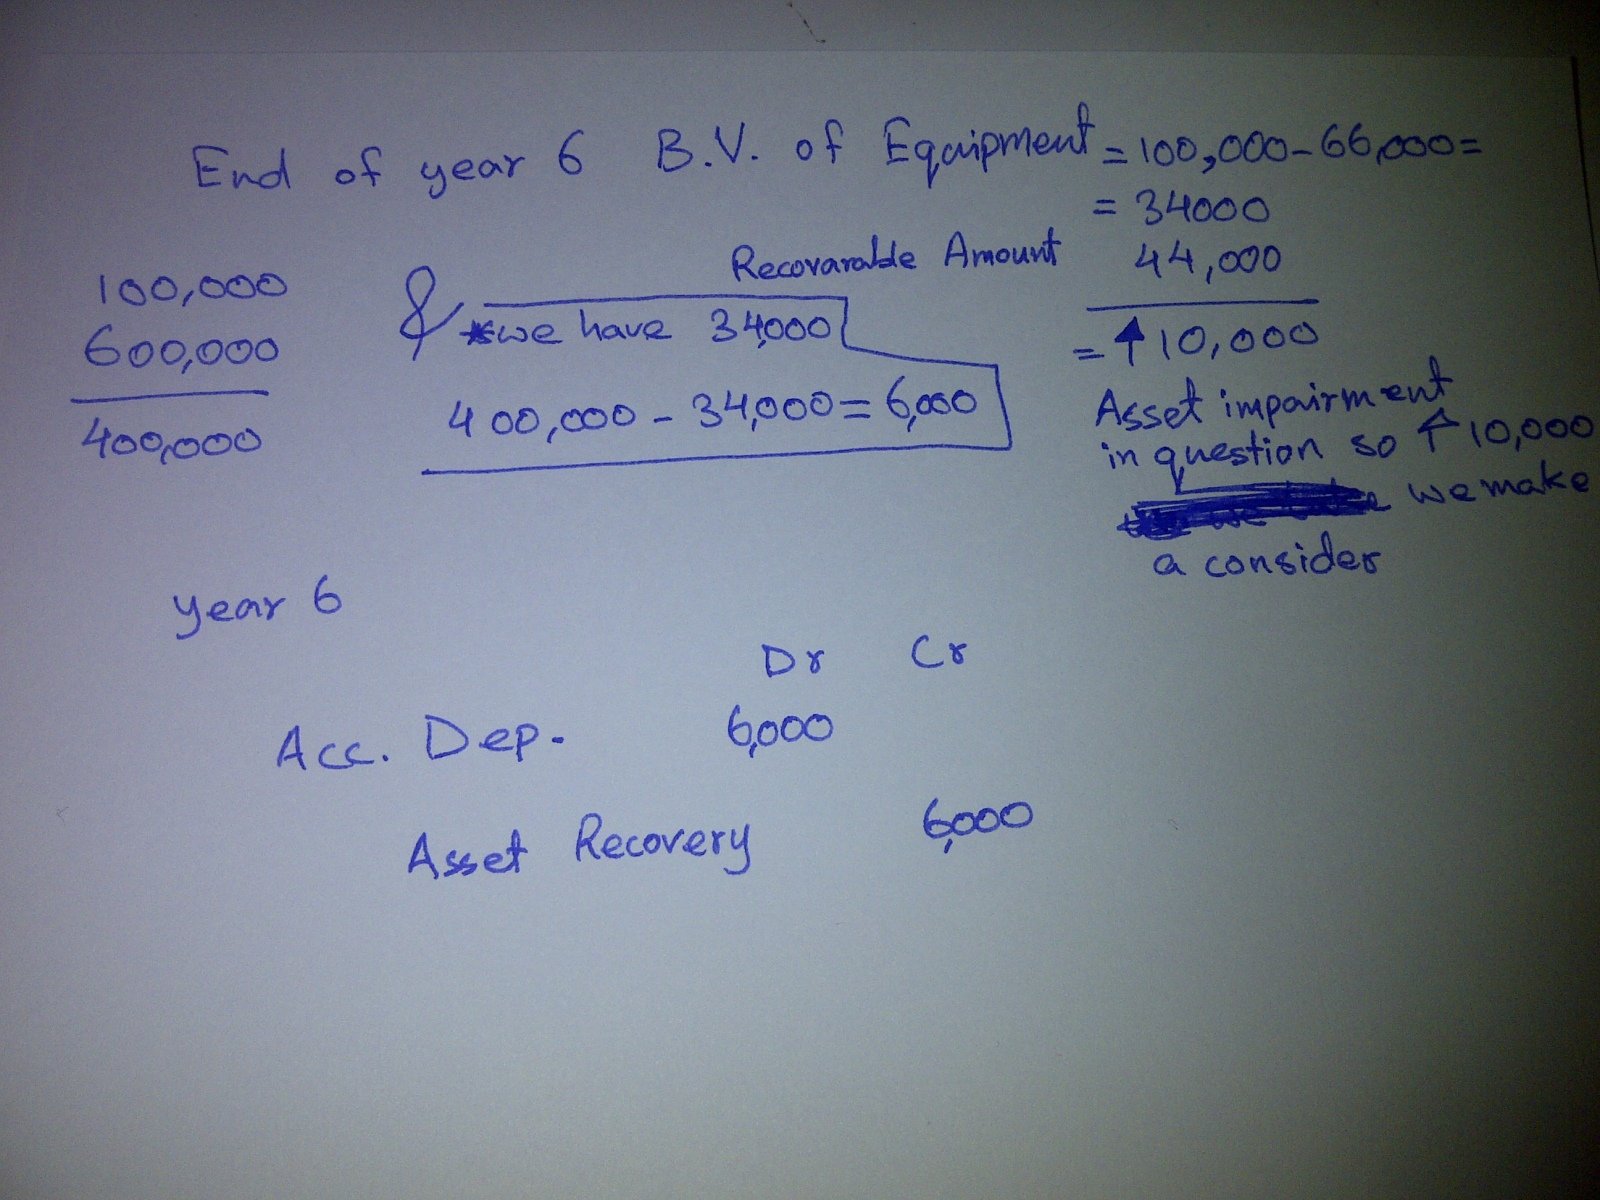 End of year 6 B.V. of Equipment = 100,000-66,000=
= 34000
Recovarable Amount 44,000
= ↑ 10,000
Asset impairment
in question so ↑ 10,000
we make
a consider
100,000
600,000
400,000
& we have 34,000
400,000 - 34,000 = 6,000
year 6
Dr Cr
Acc. Dep. 6,000
Asset Recovery 6,000